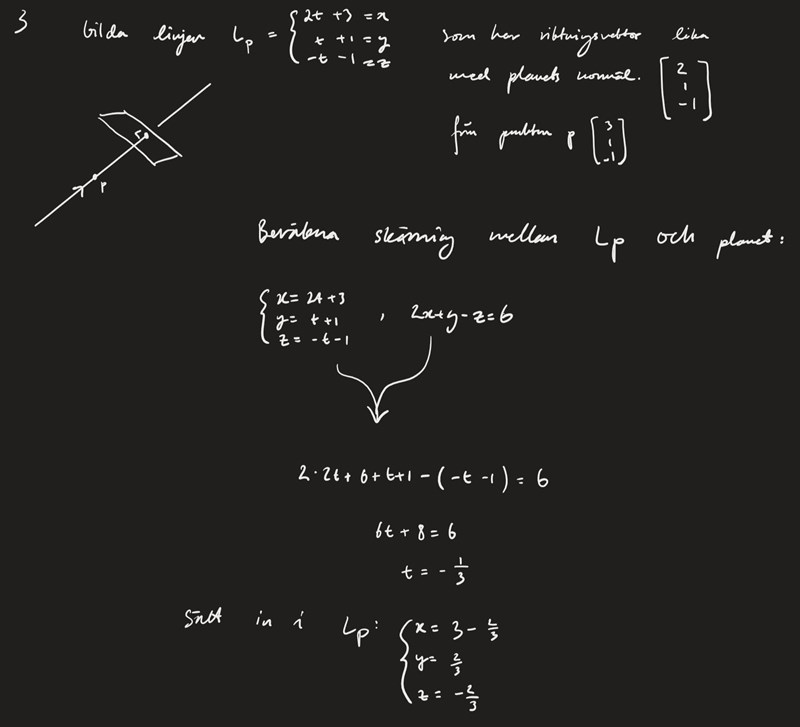 3
bilda linjen Lp = { 2t + 3 = x
t + 1 = y
-t - 1 = z
som har riktningsvektor lika
med planets normal. [2 1 -1]
från punkten p [3 1 -1]
p
Beräkna skärning mellan Lp och planet:
{ x = 2t + 3
y = t + 1 , 2x + y - z = 6
z = -t - 1
2·2t + 6 + t + 1 - (-t - 1) = 6
6t + 8 = 6
t = - 1/3
Sätt in i Lp: { x = 3 - 2/3
y = 2/3
z = - 2/3